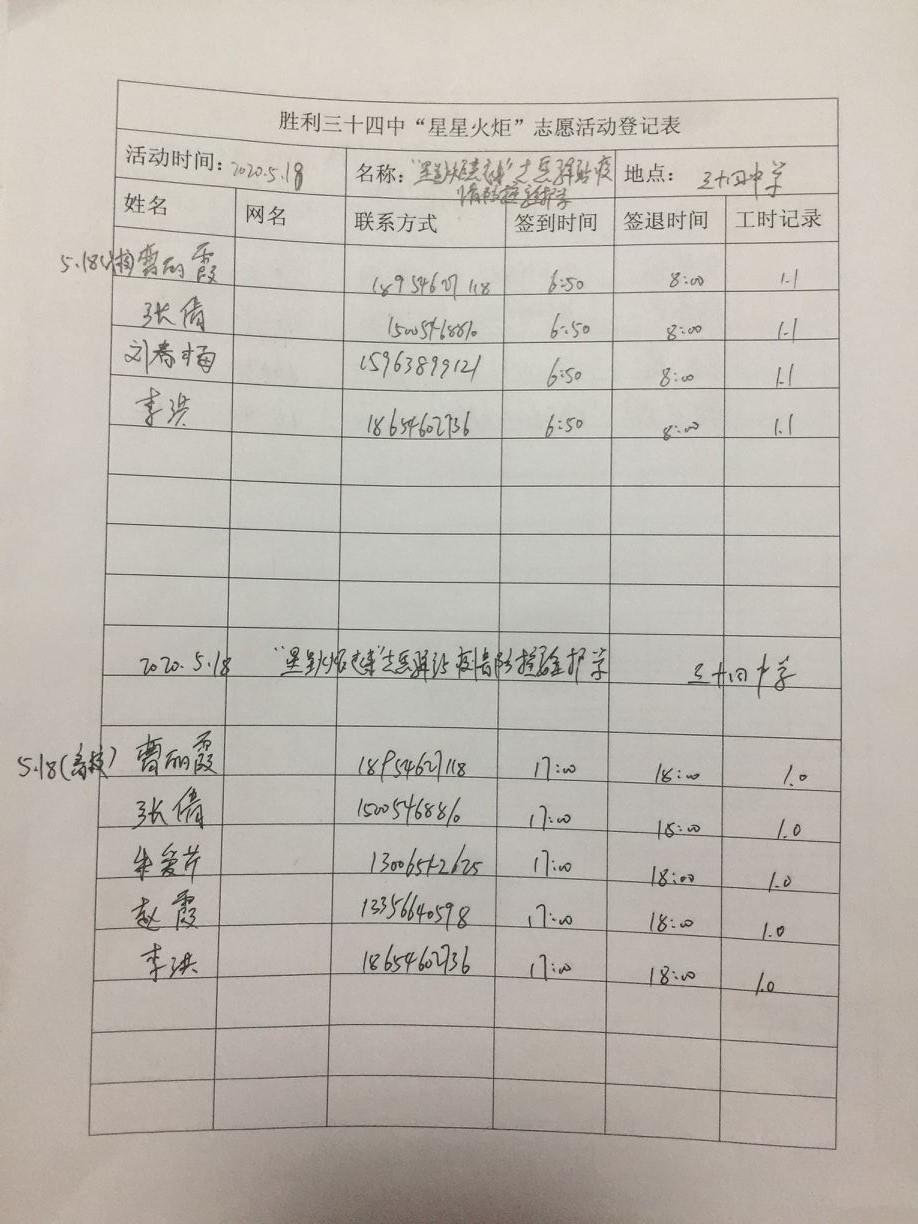 胜利三十四中“星星火炬”志愿活动登记表
活动时间：2020.5.18 名称：“星星火炬 志愿驿站疫情防控 护学 地点：三十四中学
姓名 网名 联系方式 签到时间 签退时间 工时记录
5.18 曹丽霞 18954627118 6:50 8:00 1.1
张倩 6:50 8:00 1.1
刘春梅 15963899121 6:50 8:00 1.1
李洪 18654602736 6:50 8:00 1.1
2020.5.18 “星星火炬 志愿驿站 疫情防控 护学 三十四中学
5.18(离校) 曹丽霞 18954627118 17:00 18:00 1.0
张倩 17:00 18:00 1.0
朱爱芹 13006542625 17:00 18:00 1.0
赵霞 13356640598 17:00 18:00 1.0
李洪 18654602736 17:00 18:00 1.0